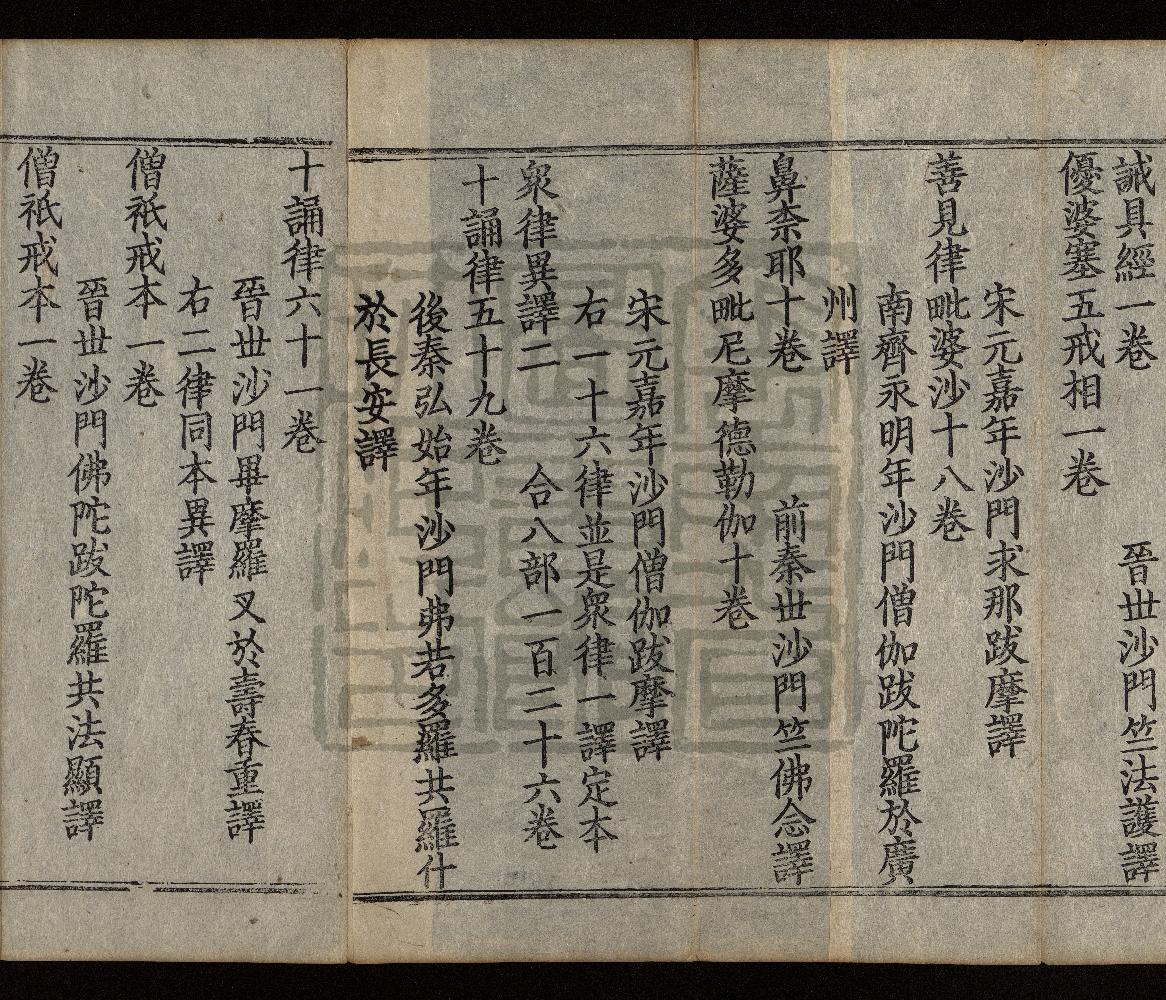 誡具經一卷　晉丗沙門竺法護譯
優婆塞五戒相一卷
宋元嘉年沙門求那跋摩譯
善見律毗婆沙十八卷
南齊永明年沙門僧伽跋陀羅於廣
州譯
鼻柰耶十卷　前秦丗沙門竺佛念譯
薩婆多毗尼摩德勒伽十卷
宋元嘉年沙門僧伽跋摩譯
右一十六律並是衆律一譯定本
衆律異譯二　合八部一百二十六卷
十誦律五十九卷
後秦弘始年沙門弗若多羅共羅什
於長安譯
十誦律六十一卷
晉丗沙門畢摩羅叉於壽春重譯
右二律同本異譯
僧祇戒本一卷
晉丗沙門佛陀跋陀羅共法顯譯
僧祇戒本一卷